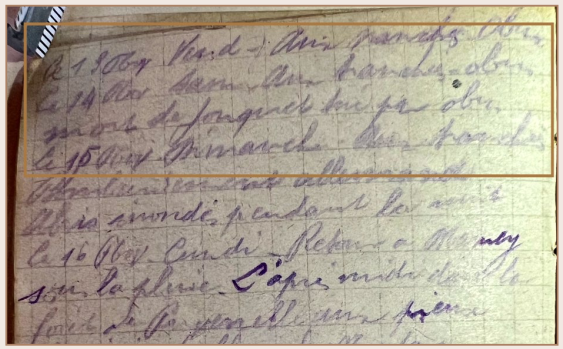 le 13 9bre Vend - Aux tranchées obus
le 14 9bre Sam. Aux tranchées, obus
mort de Jonquet tué par obus
le 15 9bre Dimanche Aux tranchées
allemand
Abris inondés pendant la nuit
le 16 9bre Lundi - Retour à
sous la pluie. L'après midi dans la
forêt de